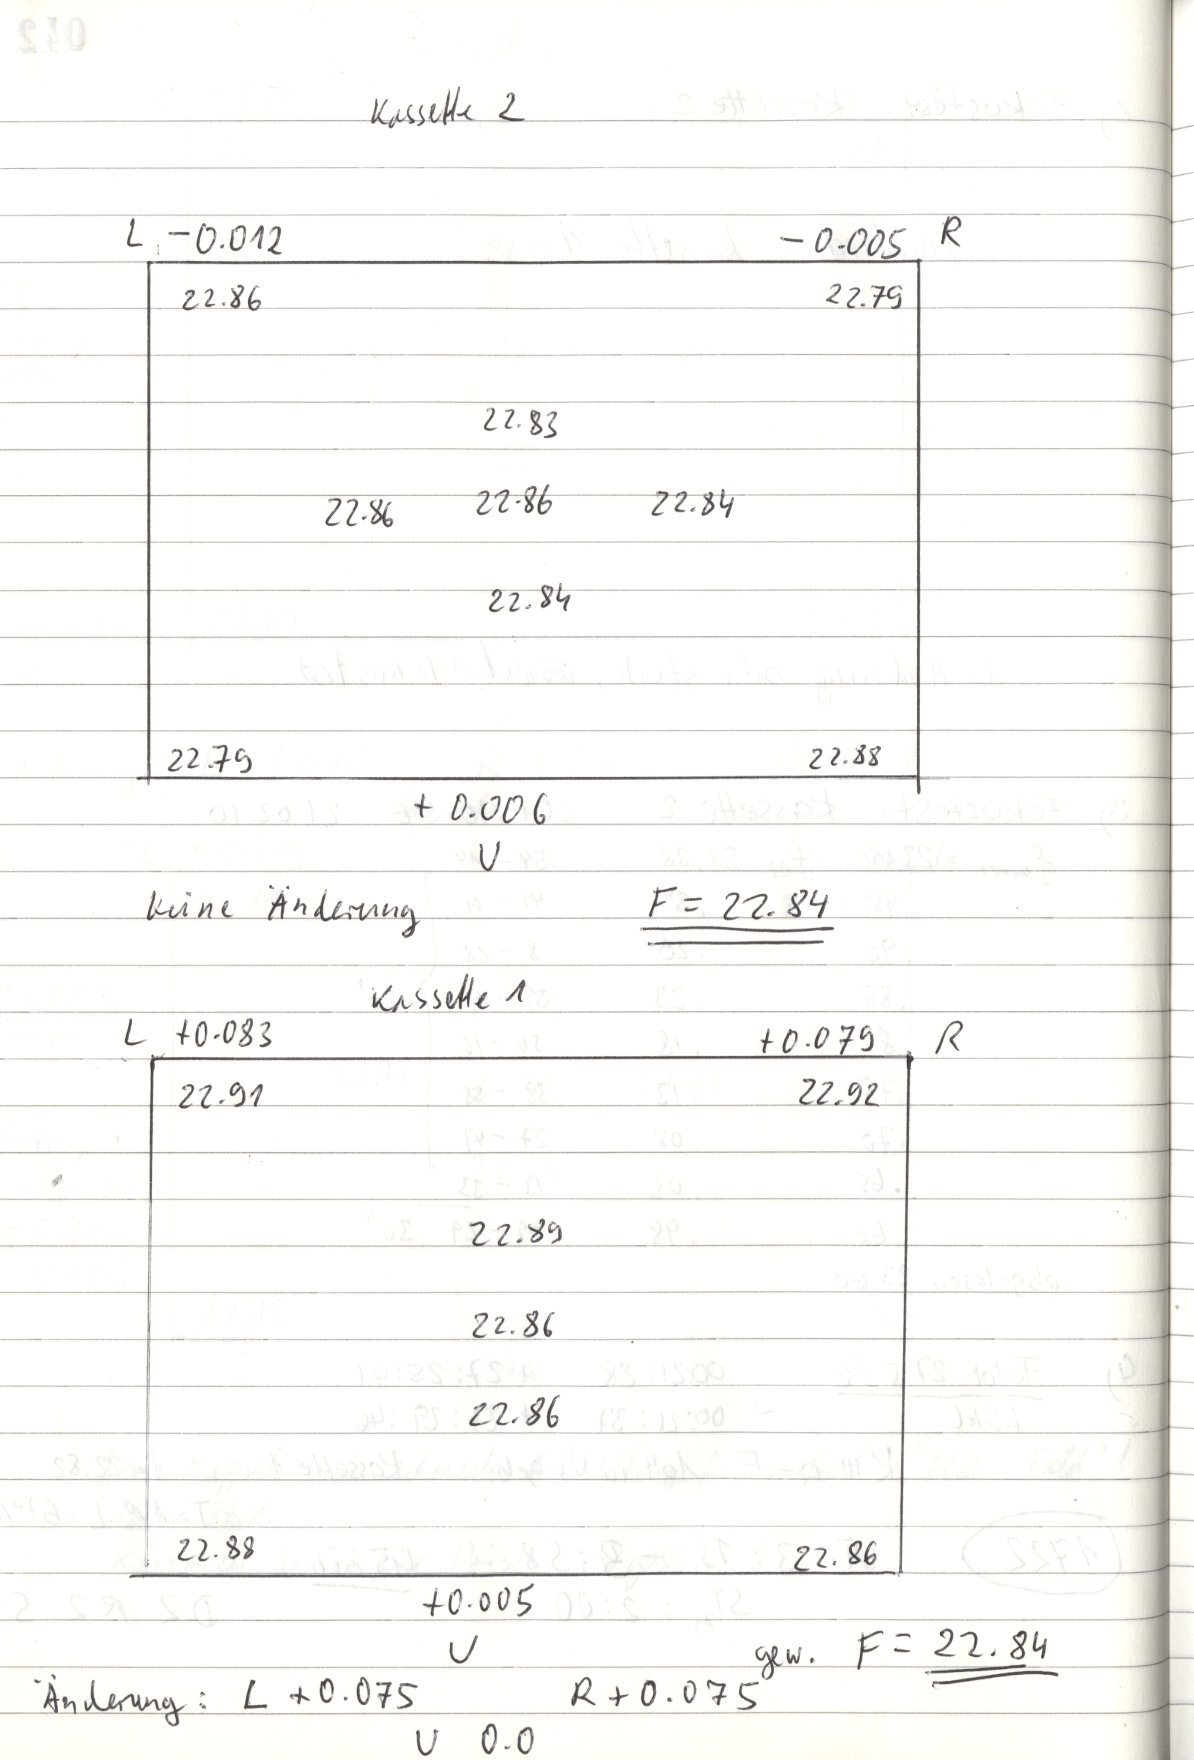 Kassette 2
L -0.012 -0.005 R
22.86 22.79
22.83
22.86 22.86 22.84
22.84
22.79 22.88
+ 0.006
U
keine Änderung F = 22.84
Kassette 1
L +0.083 +0.079 R
22.91 22.92
22.89
22.86
22.86
22.88 22.86
+0.005
U
gew. F = 22.84
Änderung: L +0.075 R +0.075
U 0.0